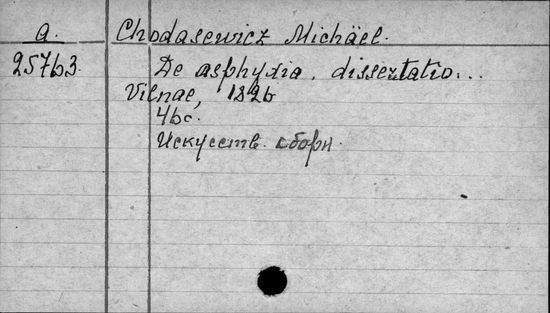 a. Chodasewicz Michäel.
25763. De asphyxia, dissertatio...
Vilnae, 1826
46 c.
Искусств. сборн.